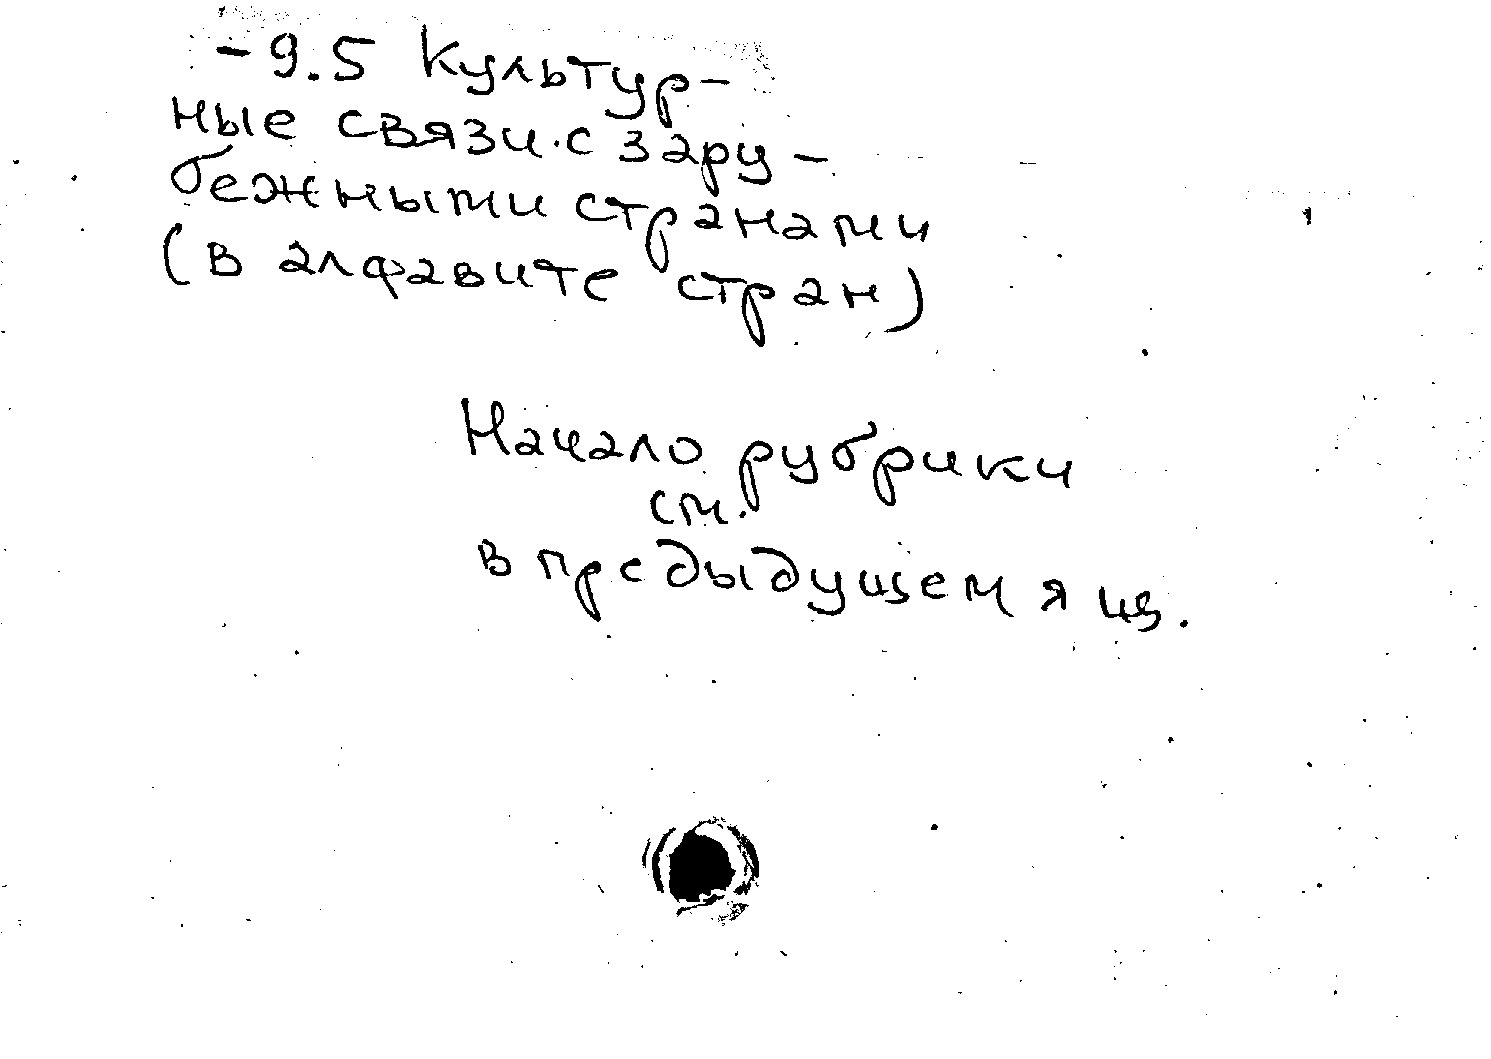 -9.5 Культур-
ные связи с зару-
бежными странами
(в алфавите стран)
Начало рубрики
см.
в предыдущем ящ.